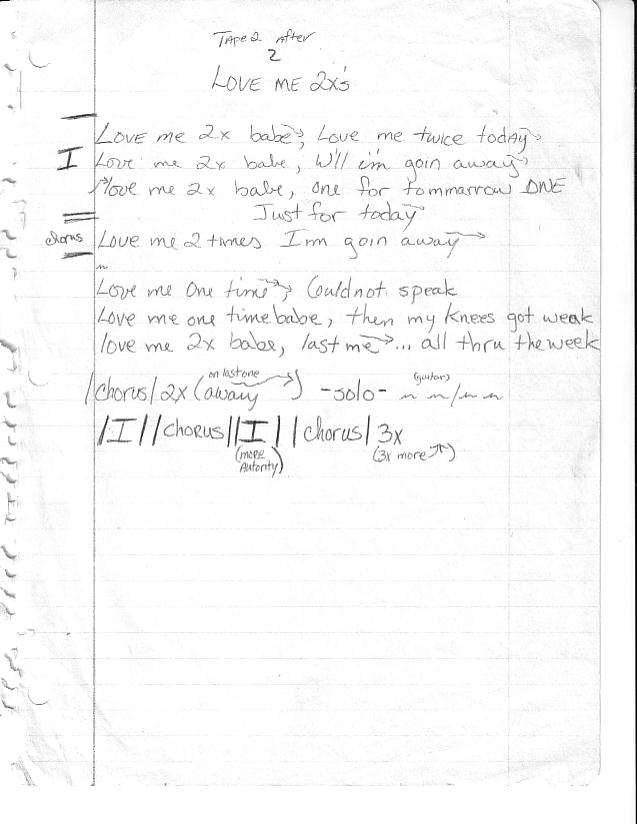 Tape 2 After
2
LOVE ME 2x's
Love me 2x babe, Love me twice today
I Love me 2x babe, W'll i'm goin away
love me 2x babe, one for tommarrow ONE
Just for today
chorus Love me 2 times I'm goin away
Love me One time, Could not speak
Love me one time babe, then my knees got weak
love me 2x babe, last me ... all thru the week
on last one (guitar)
|chorus| 2x (away) -solo-
|I| |chorus| |I| |chorus| 3x
(more Autority) (3x more)